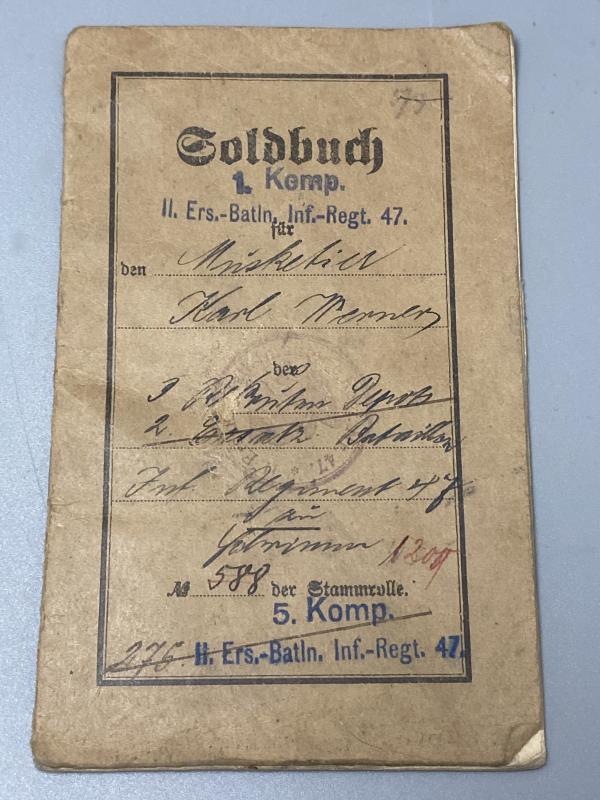 Soldbuch
1. Komp.
II. Ers.-Batln. Inf.-Regt. 47.
für
den Musketier
Karl Werner
der
Rekruten Depots
2. Ersatz Bataillon
Inf. Regiment 47
zu
Schrimm 1209
№ 588 der Stammrolle.
5. Komp.
276. II. Ers.-Batln. Inf.-Regt. 47.